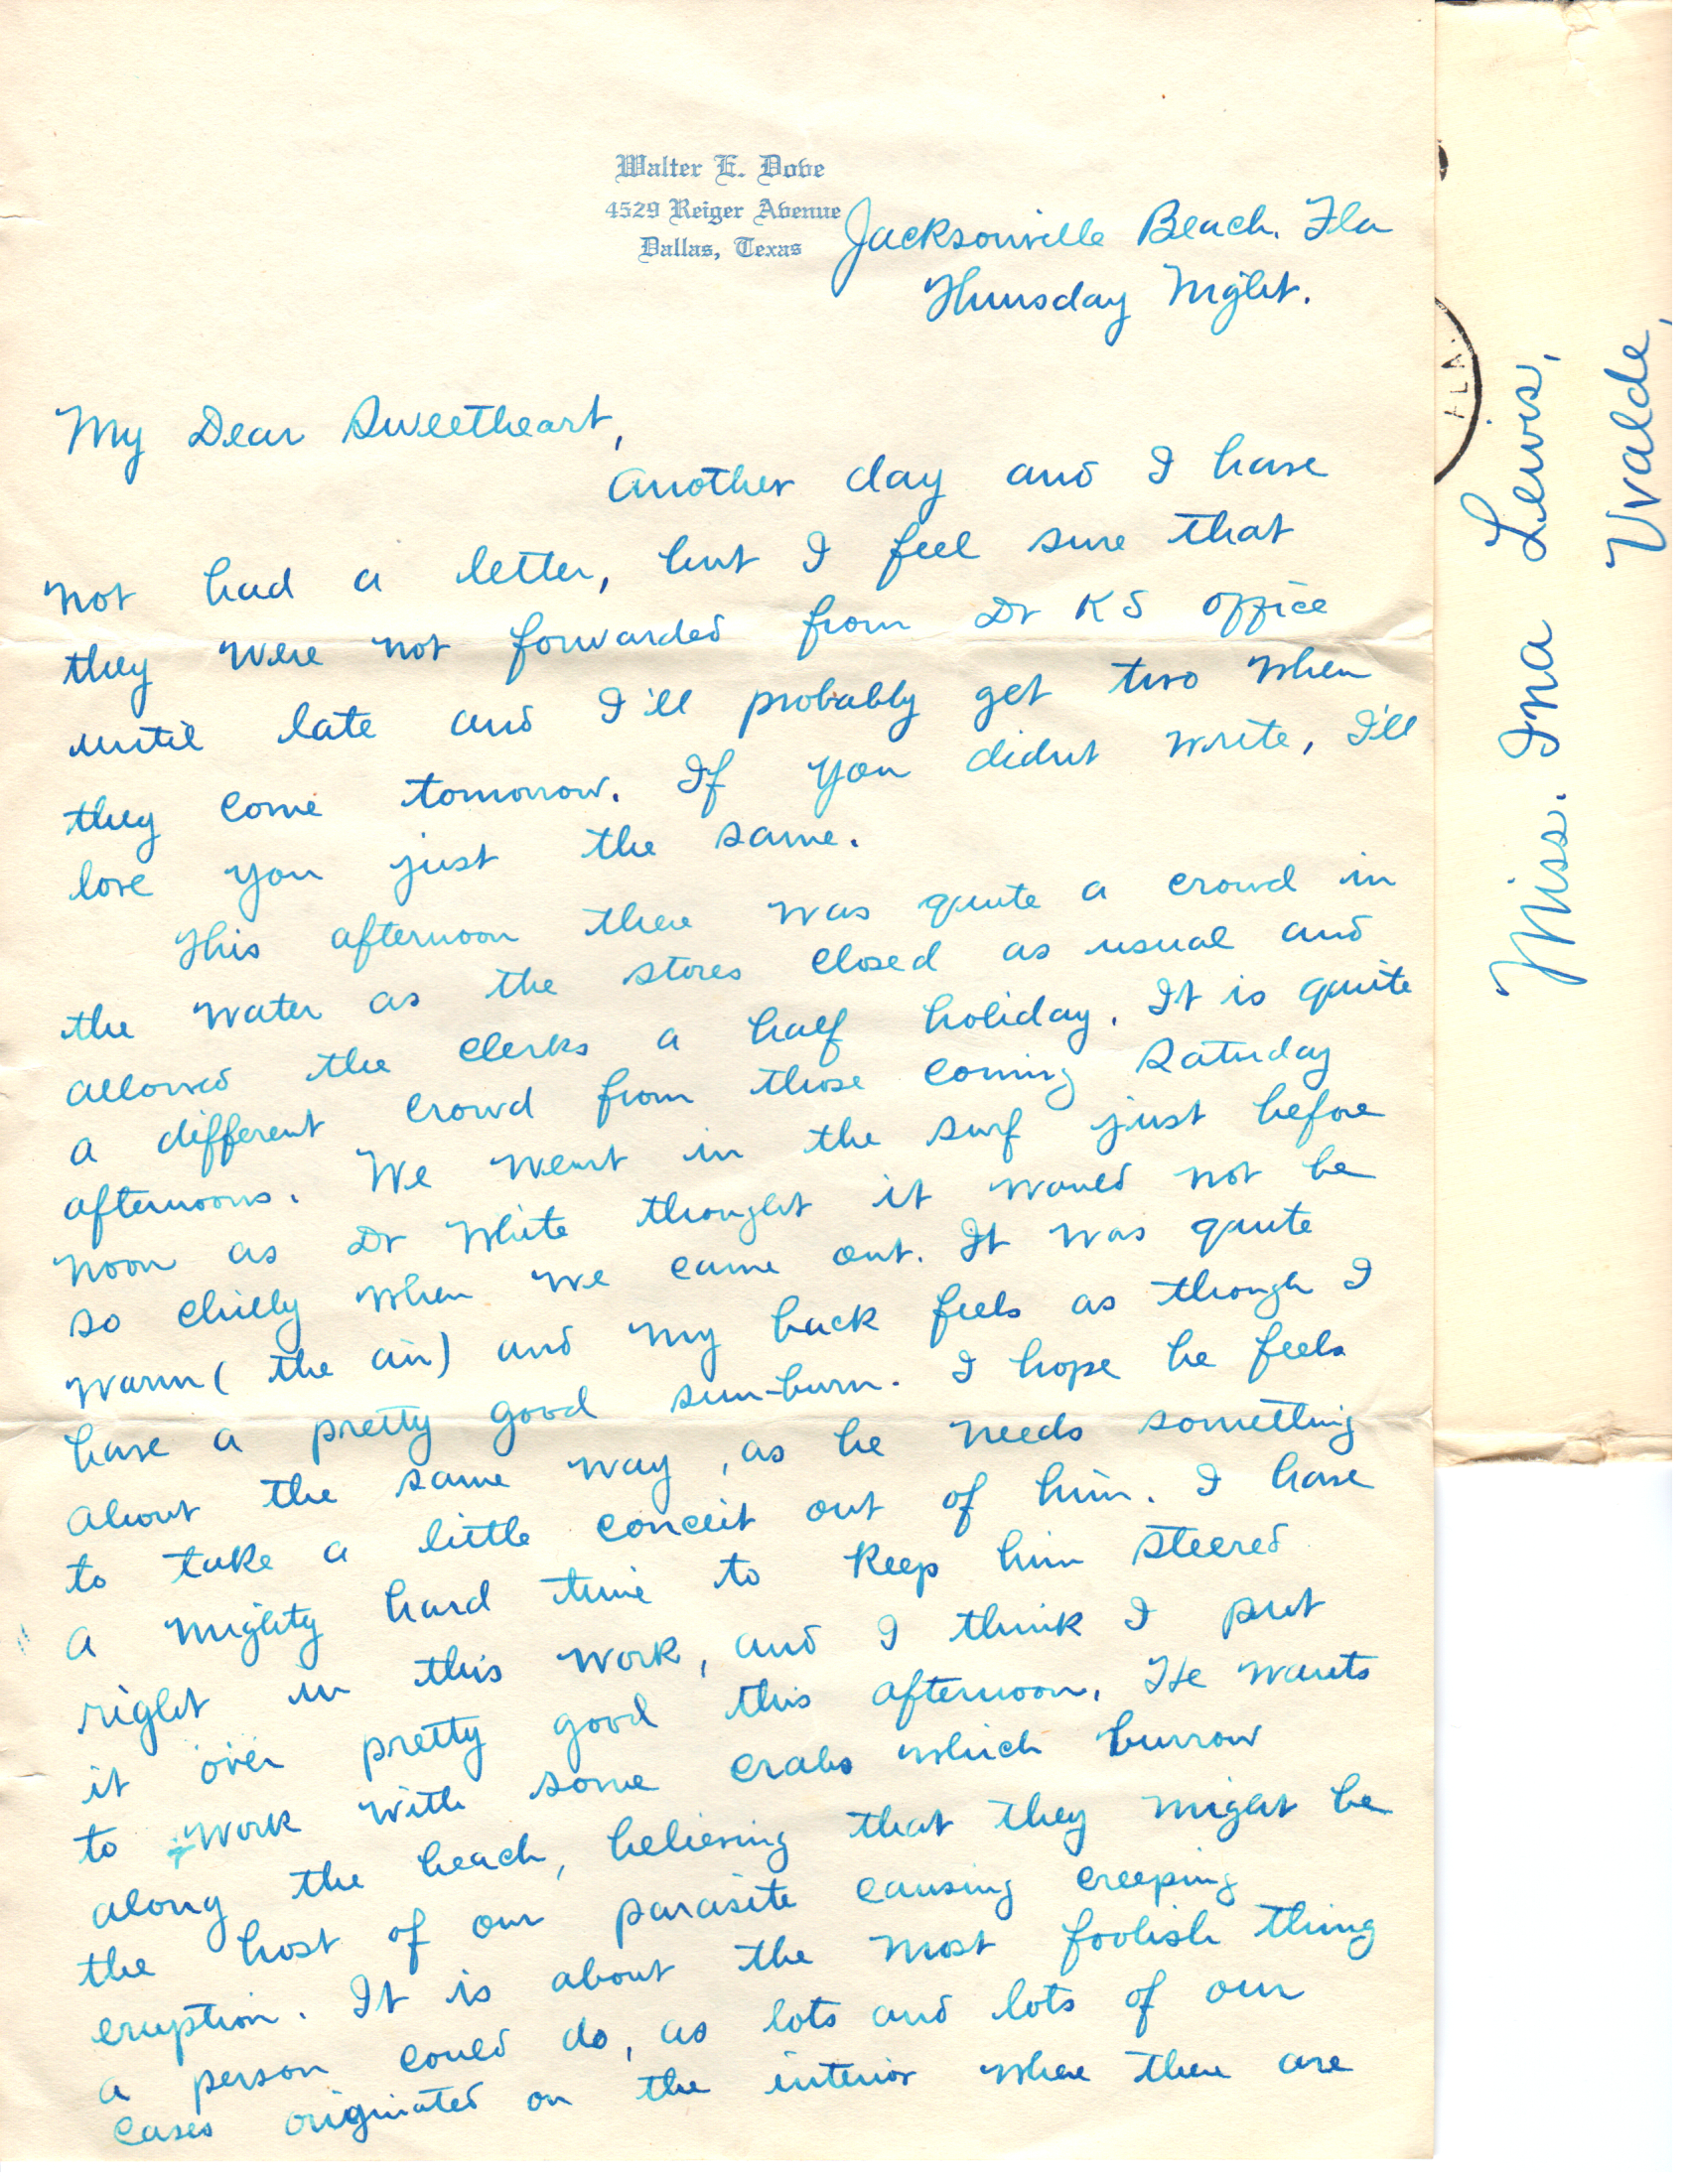 Walter E. Dove
4529 Reiger Avenue
Dallas, Texas
Jacksonville Beach. Fla
Thursday Night.
My Dear Sweetheart,
Another day and I have
not had a letter, but I feel sure that
they were not forwarded from Dr KS office
until late and I'll probably get two when
they come tomorrow. If you didnt write, I'll
love you just the same.
This afternoon there was quite a crowd in
the water as the stores closed as usual and
allowed the clerks a half holiday. It is quite
a different crowd from those coming Saturday
afternoons. We went in the surf just before
noon as Dr White thought it would not be
so chilly when we came out. It was quite
warm (the air) and my back feels as though I
have a pretty good sun-burn. I hope he feels
about the same way, as he needs something
to take a little conceit out of him. I have
a mighty hard time to keep him steered
right in this work, and I think I put
it over pretty good this afternoon. He wants
to work with some crabs which burrow
along the beach, believing that they might be
the host of our parasite causing creeping
eruption. It is about the most foolish thing
a person could do, as lots and lots of our
cases originated on the interior where there are
FLA.
Miss. Ina Lewis,
Uvalde,